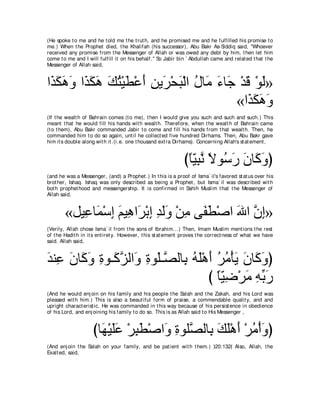 (He spoke to me and he told me the truth, and he promised me and he fulfilled his promise to
me.) When the Prophet died, the Khalifah (his successor), Abu Bakr As-Siddiq said, "Whoever
received any promise from the Messenger of Allah or was owed any debt by him, then let him
come to me and I will fulfill it on his behalf.'' So Jabir bin `Abdullah came and related that the
Messenger of Allah said,
«لَوْ قَدْ جَاءَ مَالُ الْبَحْرَيْنِ أَعْطَيْتُكَ هَكَذَا وَهَكَذَا
وَهَكَذَا»
(If the wealth of Bahrain comes (to me), then I would give you such and such and such.) This
meant that he would fill his hands with wealth. Therefore, when the wealth of Bahrain came
(to them), Abu Bakr commanded Jabir to come and fill his hands from that wealth. Then, he
commanded him to do so again, until he collected five hundred Dirhams. Then, Abu Bakr gave
him its double along with it.(i.e. one thousand extra Dirhams). Concerning Allah's statement,
(وَكَانَ رَسُولاً نَّبِيّاً)
(and he was a Messenger, (and) a Prophet.) In this is a proof of Isma`il's favored status over his
brother, Ishaq. Ishaq was only described as being a Prophet, but Isma`il was described with
both prophethood and messengership. It is confirmed in Sahih Muslim that the Messenger of
Allah said,
«إِنَّ اللهَ اصْطَفَى مِنْ وَلَدِ إِبْرَاهِيمَ إِسْمَاعِيل»
(Verily, Allah chose Isma`il from the sons of Ibrahim...) Then, Imam Muslim mentions the rest
of the Hadith in its entirety. However, this statement proves the correctness of what we have
said. Allah said,
(وَكَانَ يَأْمُرُ أَهْلَهُ بِالصَّلَوةِ وَالزَّكَوةِ وَكَانَ عِندَ
رَبِّهِ مَرْضِيّاً )
(And he would enjoin on his family and his people the Salah and the Zakah, and his Lord was
pleased with him.) This is also a beautiful form of praise, a commendable quality, and and
upright characteristic. He was commanded in this way because of his persistence in obedience
of his Lord, and enjoining his family to do so. This is as Allah said to His Messenger ,
(وَأْمُرْ أَهْلَكَ بِالصَّلَوةِ وَاصْطَبِرْ عَلَيْهَا)
(And enjoin the Salah on your family, and be patient with them.) )20:132( Also, Allah, the
Exalted, said,